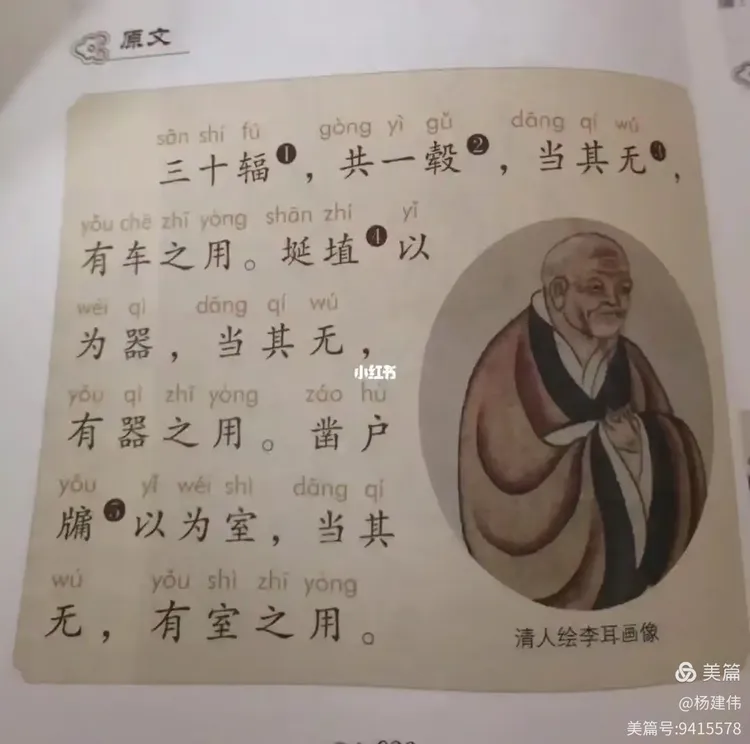 原文
sān shí fú gòng yì gǔ dāng qí wú
三十辐❶，共一毂❷，当其无❸，
yǒu chē zhī yòng shān zhí yǐ
有车之用。埏埴❹以
wéi qì dāng qí wú
为器，当其无，
小红书
yǒu qì zhī yòng záo hù
有器之用。凿户
yǒu yǐ wéi shì dāng qí
牖❺以为室，当其
wú yǒu shì zhī yòng
无，有室之用。
清人绘李耳画像
美篇
@杨建伟
美篇号:9415578